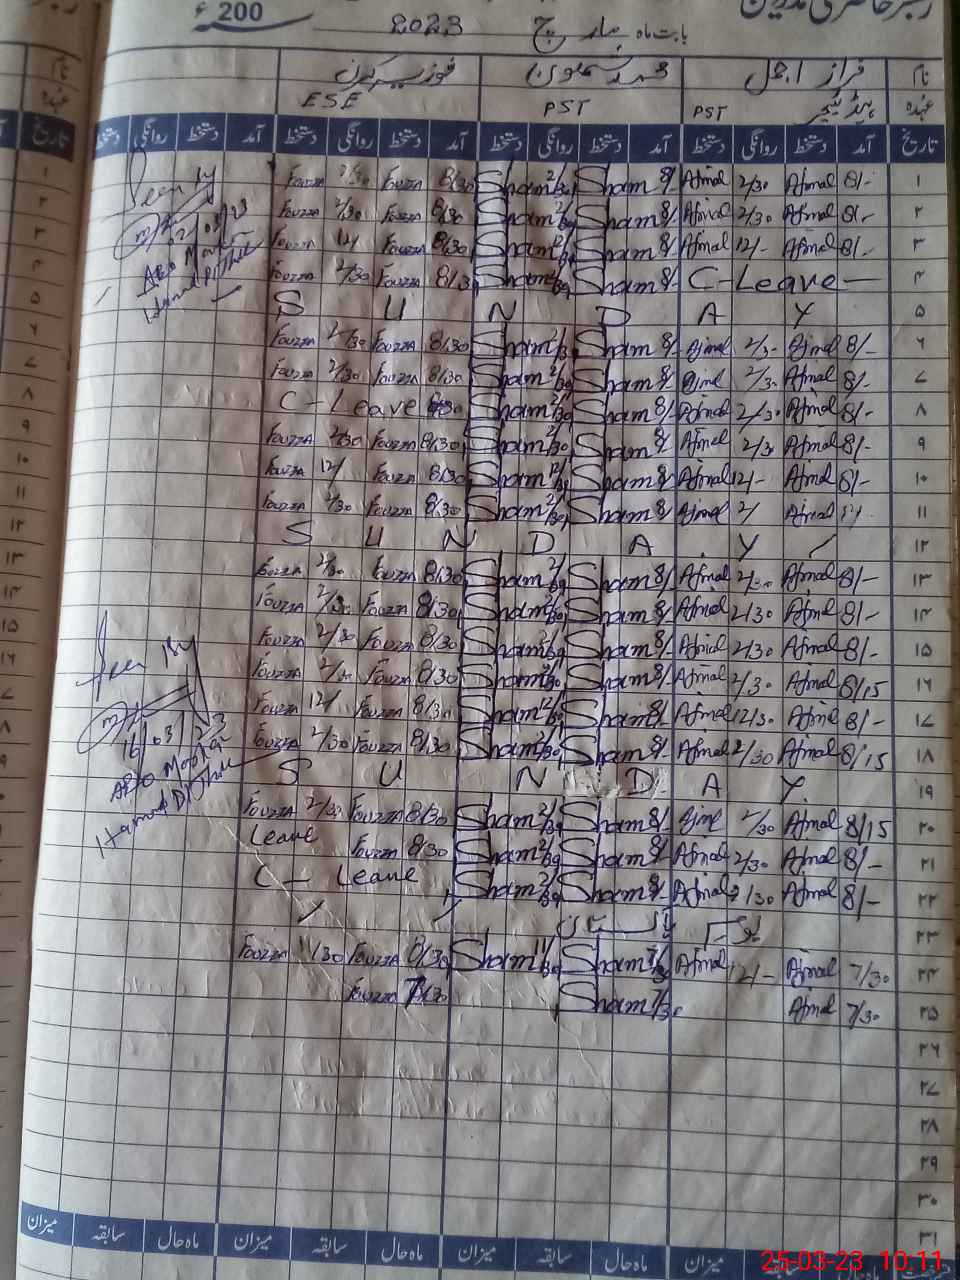 200ء
بابت ماہ مارچ 2023
نام فراز اجمل
عہدہ ہیڈ ٹیچر PST PST ESE
تاریخ آمد دستخط روانگی دستخط آمد دستخط روانگی دستخط آمد دستخط روانگی دستخط آمد دستخط روانگی دستخط
۱ 8/- Ajmal 2/30 Ajmal 8/- Sham 2/30 Sham 8/30 Fouzia 2/30 Fouzia
۲ 8/- Ajmal 2/30 Ajmal 8/- Sham 2/30 Sham 8/30 Fouzia 2/30 Fouzia
۳ 8/- Ajmal 12/- Ajmal 8/- Sham 12/ Sham 8/30 Fouzia 12/ Fouzia
۴ C-Leave 8/- Sham 2/30 Sham 8/30 Fouzia 2/30 Fouzia
۵ S U N D A Y
۶ 8/- Ajmal 2/30 Ajmal 8/- Sham 2/30 Sham 8/30 Fouzia 2/30 Fouzia
۷ 8/- Ajmal 2/30 Ajmal 8/- Sham 2/30 Sham 8/30 Fouzia 2/30 Fouzia
۸ 8/- Ajmal 2/30 Ajmal 8/- Sham 2/30 Sham C-Leave
۹ 8/- Ajmal 2/30 Ajmal 8/ Sham 2/30 Sham 8/30 Fouzia 2/30 Fouzia
۱۰ 8/- Ajmal 12/- Ajmal 8/ Sham 12/ Sham 8/30 Fouzia 12/ Fouzia
۱۱ Ajmal 2/ Ajmal 8/ Sham 2/30 Sham 8/30 Fouzia 2/30 Fouzia
۱۲ S U N D A Y
۱۳ 8/- Ajmal 2/30 Ajmal 8/- Sham 2/30 Sham 8/30 Fouzia 2/30 Fouzia
۱۴ 8/- Ajmal 2/30 Ajmal 8/- Sham 2/30 Sham 8/30 Fouzia 2/30 Fouzia
۱۵ 8/- Ajmal 2/30 Ajmal 8/- Sham 2/30 Sham 8/30 Fouzia 2/30 Fouzia
۱۶ 8/15 Ajmal 2/30 Ajmal 8/- Sham 2/30 Sham 8/30 Fouzia 2/30 Fouzia
۱۷ 8/- Ajmal 12/30 Ajmal 8/- Sham 12/ Sham 8/30 Fouzia 12/ Fouzia
۱۸ 8/15 Ajmal 2/30 Ajmal 8/- Sham 2/30 Sham 8/30 Fouzia 2/30 Fouzia
۱۹ S U N D A Y
۲۰ 8/15 Ajmal 2/30 Ajmal 8/ Sham 2/30 Sham 8/30 Fouzia 2/30 Fouzia
۲۱ 8/- Ajmal 2/30 Ajmal 8/- Sham 2/30 Sham 8/30 Fouzia Leave
۲۲ 8/- Ajmal 2/30 Ajmal 8/- Sham 2/30 Sham C-Leave
۲۳ یوم پاکستان
۲۴ 7/30 Ajmal 12/- Ajmal 7/30 Sham 11/30 Sham 8/30 Fouzia 11/30 Fouzia
۲۵ 7/30 Ajmal 7/30 Sham Fouzia
۲۶
۲۷
۲۸
۲۹
۳۰
۳۱
ماہ حال سابقہ میزان ماہ حال سابقہ میزان ماہ حال سابقہ میزان
Seen
02/03/23
AEO
Seen
16/03/23
AEO
25-03-23 10:11